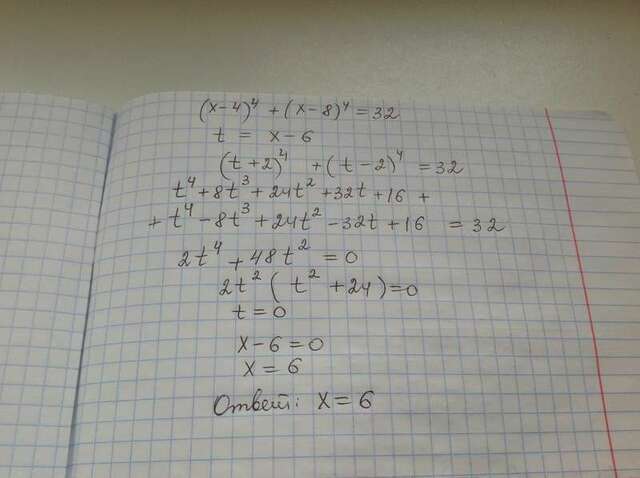 (x-4)⁴ + (x-8)⁴ = 32
t = x-6
(t+2)⁴ + (t-2)⁴ = 32
t⁴ + 8t³ + 24t² + 32t + 16 +
+ t⁴ - 8t³ + 24t² - 32t + 16 = 32
2t⁴ + 48t² = 0
2t² (t² + 24) = 0
t = 0
x-6 = 0
x = 6
Ответ: x = 6